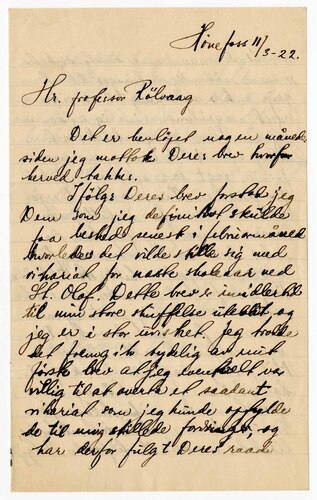 Hønefoss 11/3-22.
Hr. professor Rölvaag
Det er henløpet nogen måneder
siden jeg mottok Deres brev hvorfor
herved takkes.
Ifølge Deres brev forstod jeg
Dem som jeg definitivt skulde
faa beskjed senest i februar måned
hvorledes det vilde stille sig med
vikariat for næste skoleaar ved
St. Olaf. Dette brev er imidlertid
til min store skuffelse uteblit og
jeg er i stor uvisshet. Jeg trodde
det fremgik tydelig av mit
første brev at jeg eventuelt var
villig til at overta et saadant
vikariat som jeg kunde opfylde
de til mig stillede fordringer, og
har derfor fulgt Deres raad